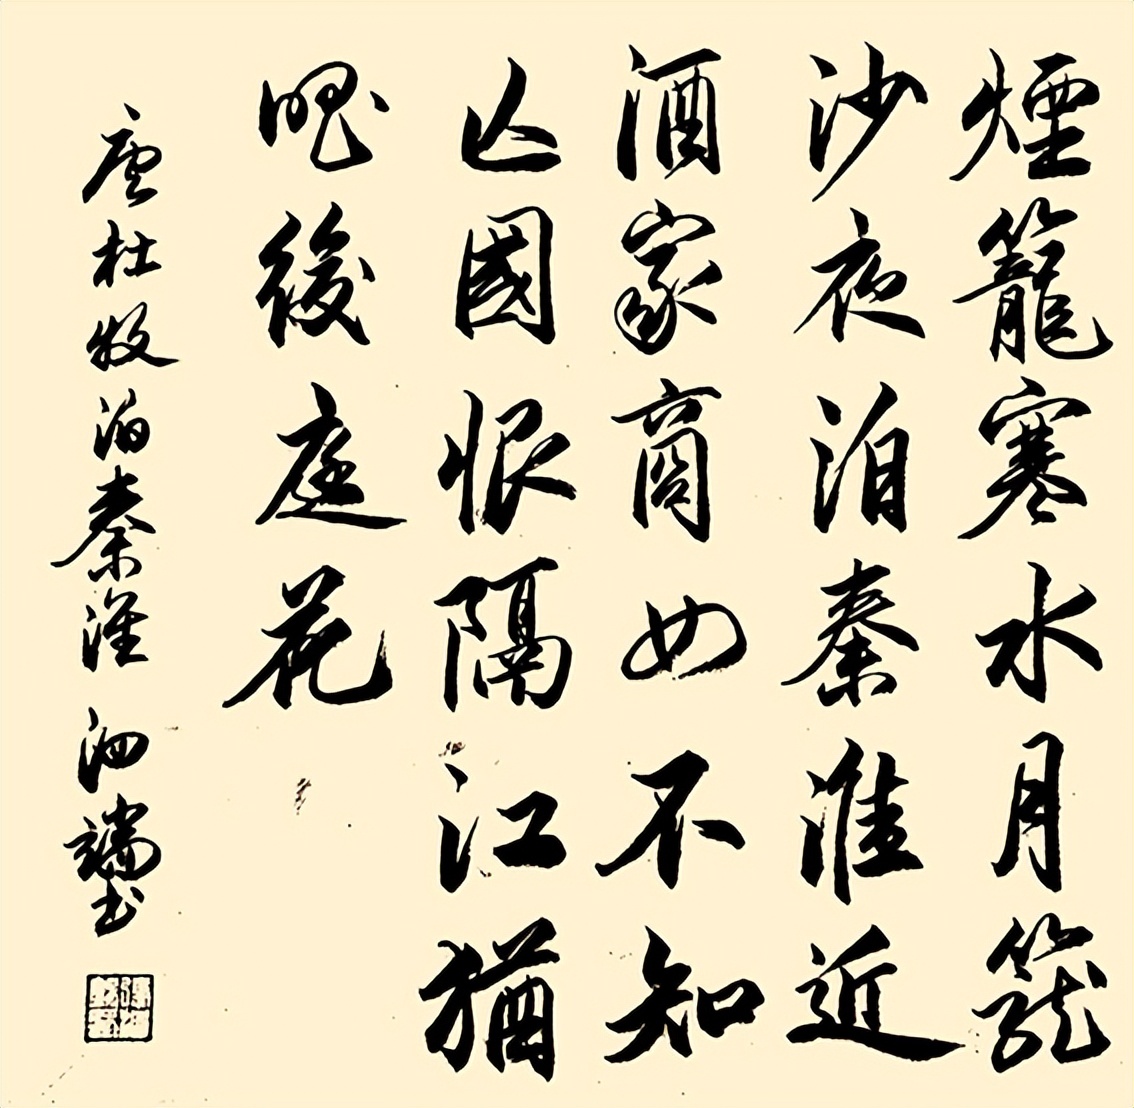 煙籠寒水月籠
沙夜泊秦淮近
酒家商女不知
亡國恨隔江猶
唱後庭花
唐杜牧泊秦淮 泗端書